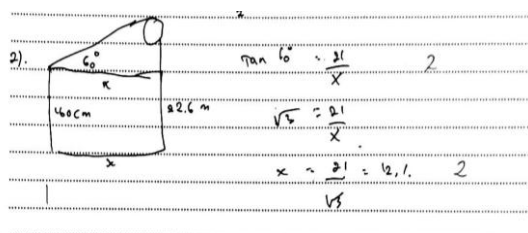 2).
60°
x
160cm
22.6 m
x
Tan 60° = 21/x 2
√3 = 21/x
x = 21/√3 = 12,1. 2